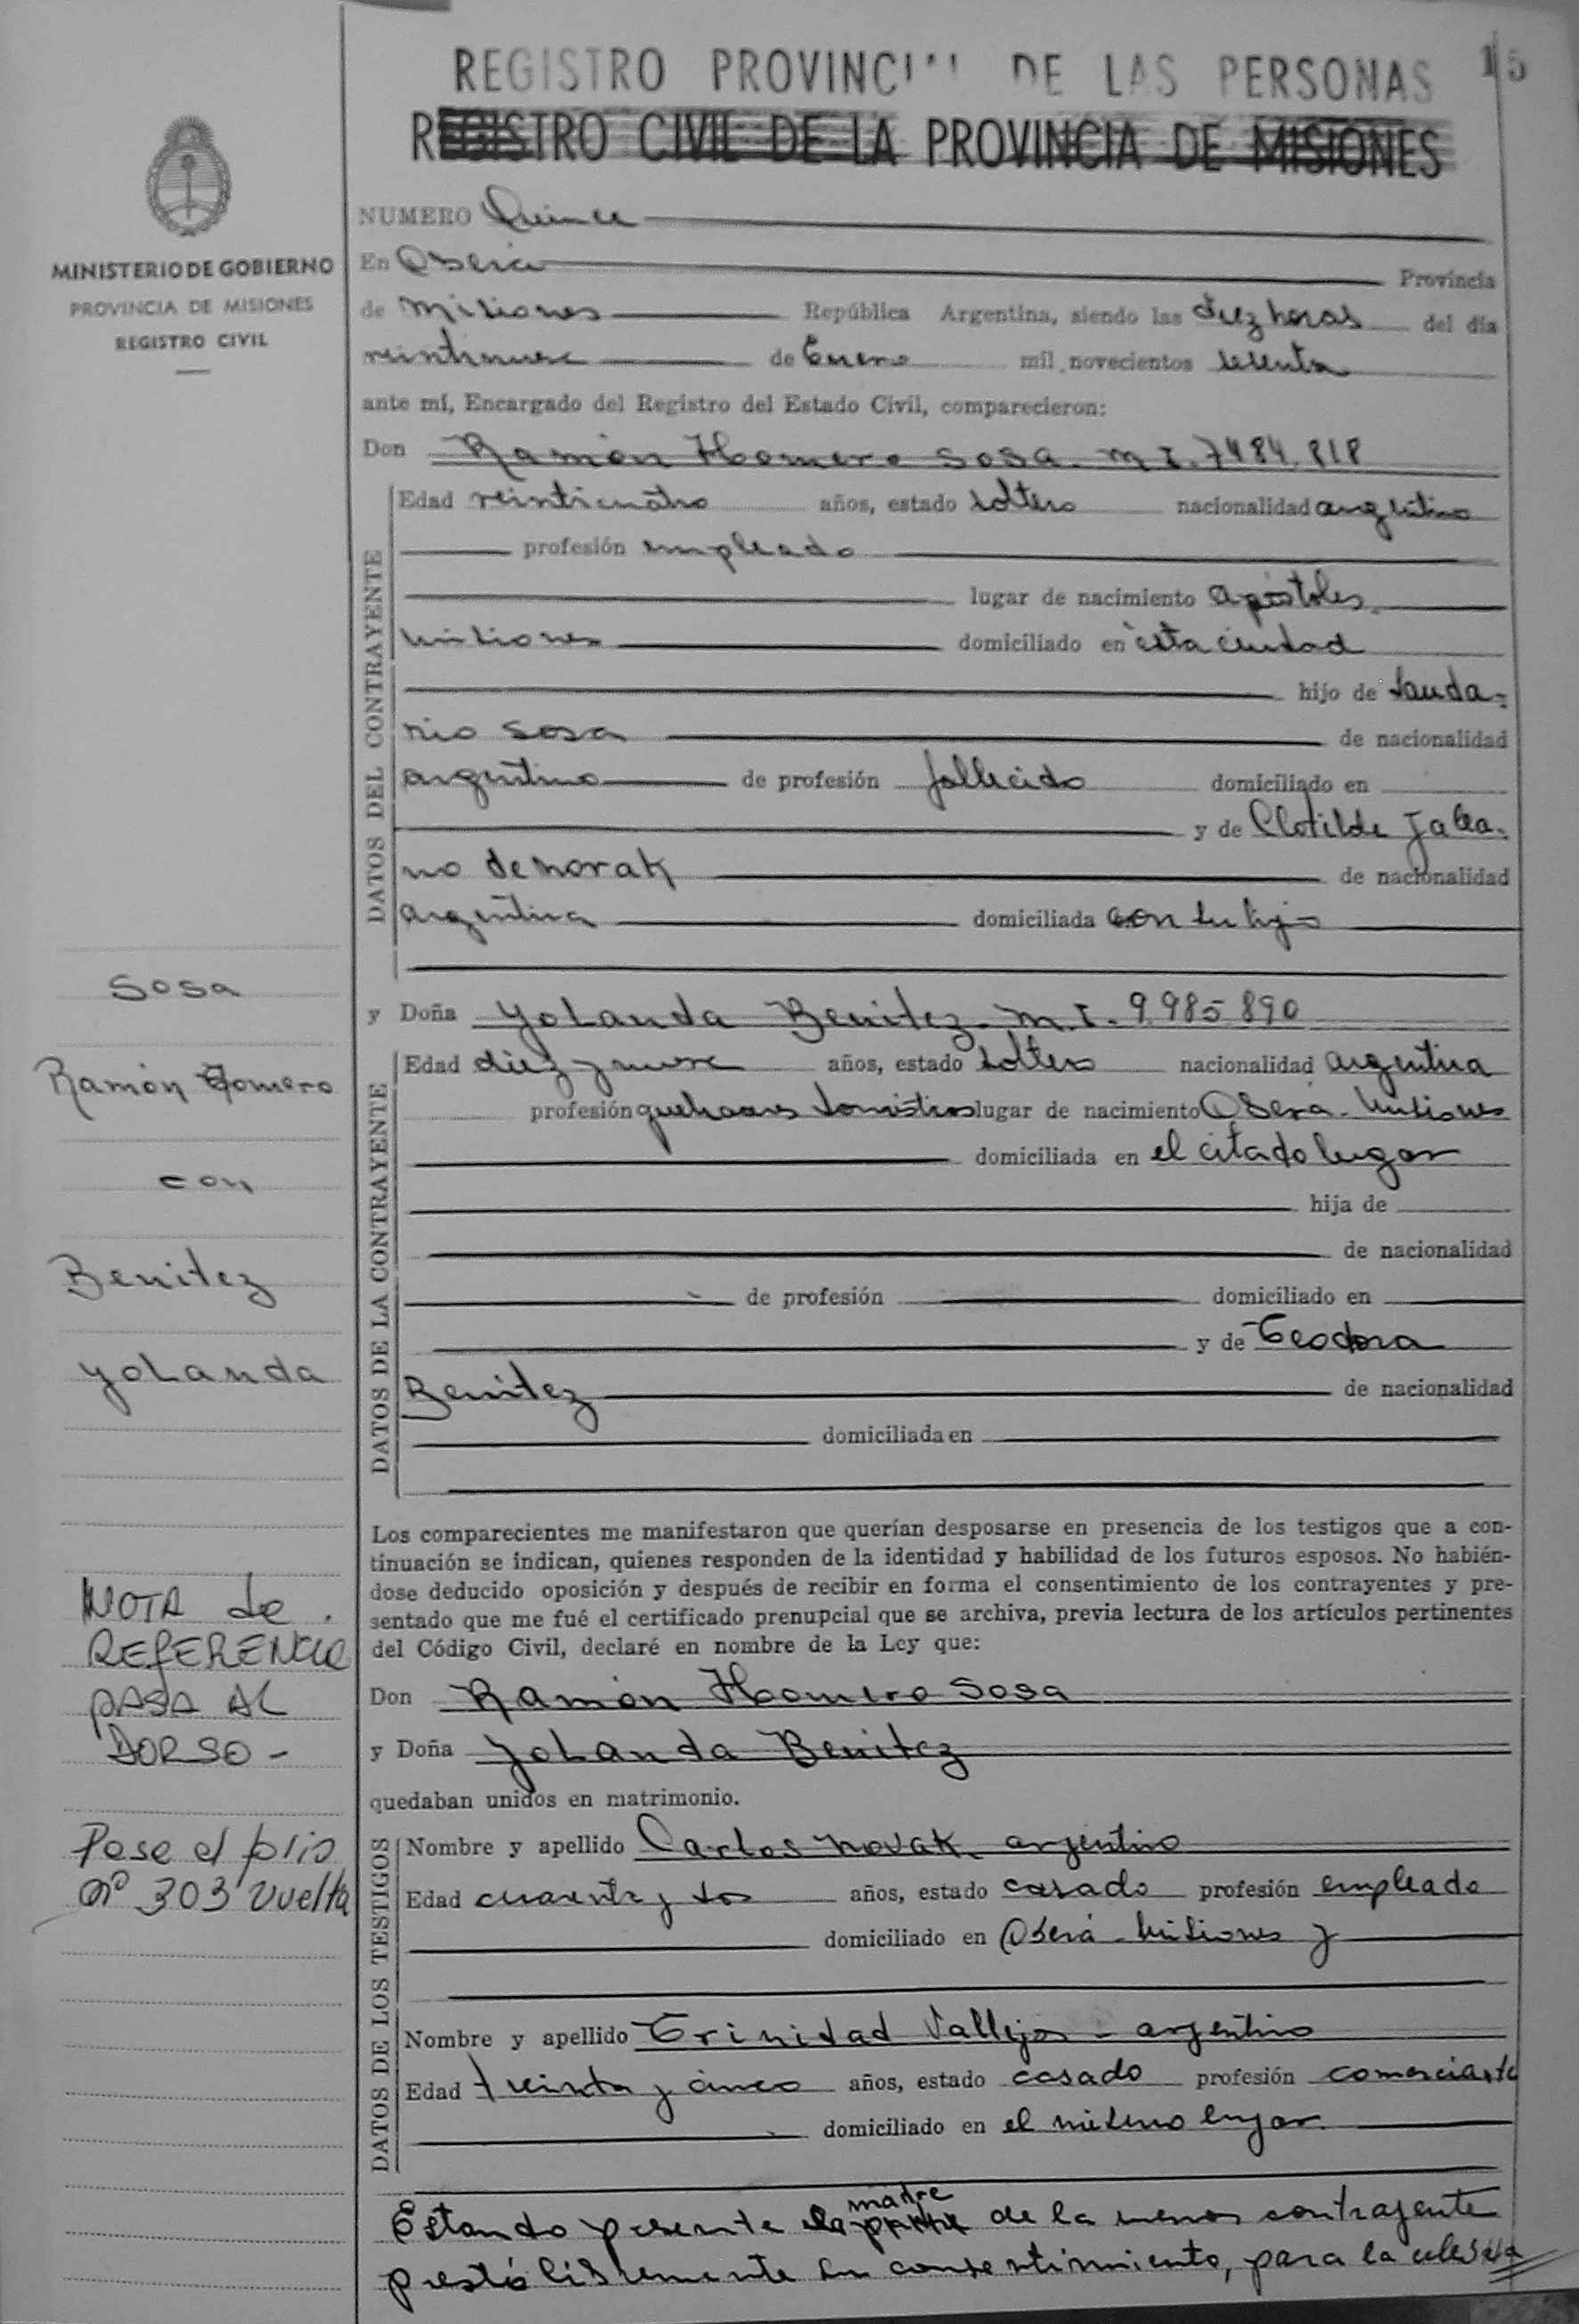 15
REGISTRO PROVINCIAL DE LAS PERSONAS
REGISTRO CIVIL DE LA PROVINCIA DE MISIONES
MINISTERIO DE GOBIERNO
PROVINCIA DE MISIONES
REGISTRO CIVIL
NUMERO Quince
En Oberá Provincia
de Misiones República Argentina, siendo las diez horas del día
veintinueve de Enero mil novecientos sesenta
ante mí, Encargado del Registro del Estado Civil, comparecieron:
Don Ramón Homero Sosa. M.I. 7484.818
DATOS DEL CONTRAYENTE
Edad veinticuatro años, estado soltero nacionalidad argentino
profesión empleado
lugar de nacimiento Apóstoles
Misiones domiciliado en esta ciudad
hijo de
rio Sosa de nacionalidad
argentino de profesión fallecido domiciliado en
y de Clotilde
no de Novak de nacionalidad
argentina domiciliada con su hijo
y Doña Yolanda Benitez. M.I. 9985890
DATOS DE LA CONTRAYENTE
Edad diez y nueve años, estado soltera nacionalidad argentina
profesión quehaceres domésticos lugar de nacimiento Oberá - Misiones
domiciliada en el citado lugar
hija de
de nacionalidad
de profesión domiciliado en
y de Teodora
Benitez de nacionalidad
domiciliada en
Los comparecientes me manifestaron que querían desposarse en presencia de los testigos que a con-
tinuación se indican, quienes responden de la identidad y habilidad de los futuros esposos. No habién-
dose deducido oposición y después de recibir en forma el consentimiento de los contrayentes y pre-
sentado que me fué el certificado prenupcial que se archiva, previa lectura de los artículos pertinentes
del Código Civil, declaré en nombre de la Ley que:
Don Ramón Homero Sosa
y Doña Yolanda Benitez
quedaban unidos en matrimonio.
DATOS DE LOS TESTIGOS
Nombre y apellido Carlos Novak. argentino
Edad cuarenta y dos años, estado casado profesión empleado
domiciliado en Oberá - Misiones y
Nombre y apellido Trinidad Vallejos - argentino
Edad treinta y cinco años, estado casado profesión comerciante
domiciliado en el mismo lugar
Estando presente la madre de la menor contrayente
prestó libremente su consentimiento, para la
Sosa
Ramón Homero
con
Benitez
Yolanda
NOTA de
REFERENCIA
PASA AL
DORSO -
Pase al folio
Nº 303 vuelta